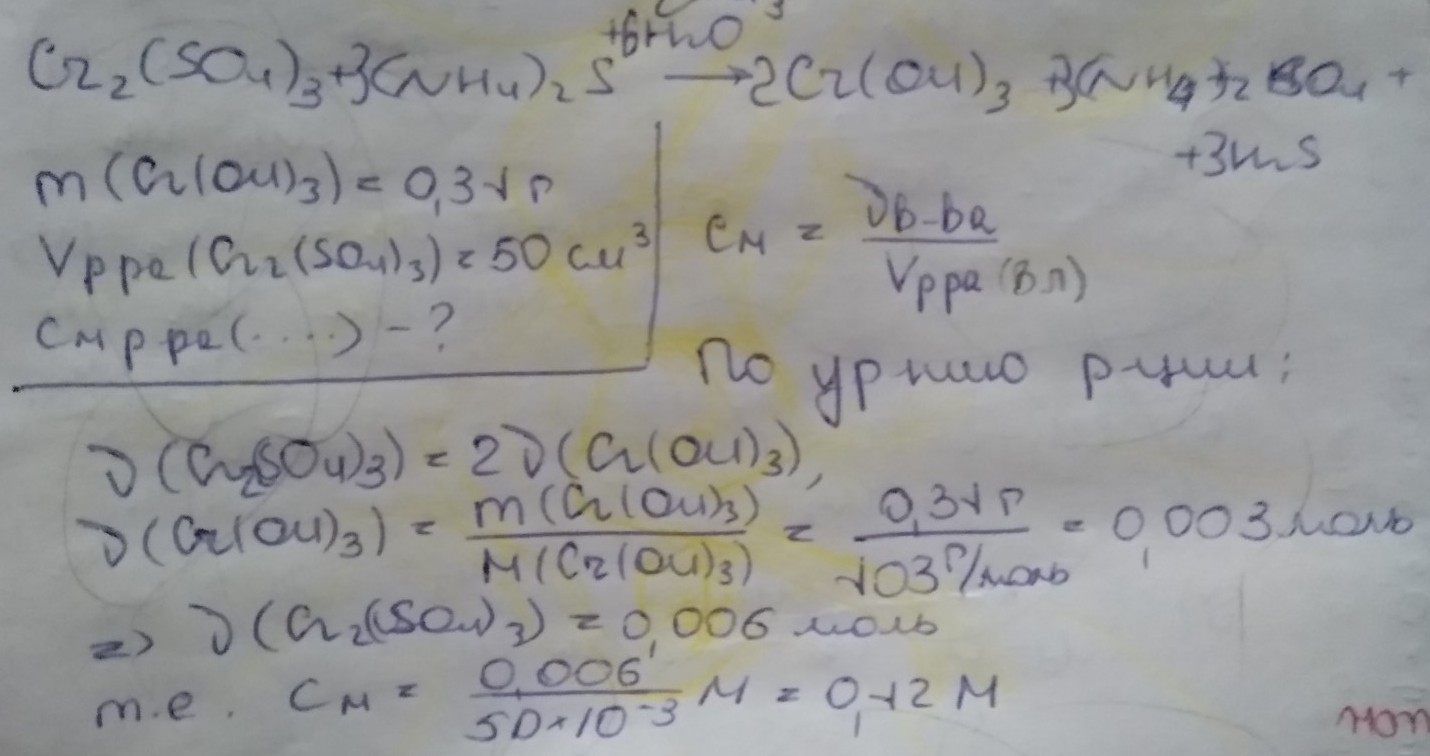 +6H₂O
Cr₂(SO₄)₃+3(NH₄)₂S → 2Cr(OH)₃ +3(NH₄)₂SO₄ +
+3H₂S
m(Cr(OH)₃) = 0,31 г
Vр-ра(Cr₂(SO₄)₃) = 50 см³
Cм р-ра(....) - ?
Cм = νв-ва / Vр-ра (в л)
По ур-нию р-ции:
ν(Cr₂(SO₄)₃) = 2ν(Cr(OH)₃),
ν(Cr(OH)₃) = m(Cr(OH)₃) / M(Cr(OH)₃) = 0,31 г / 103 г/моль = 0,003 моль
=> ν(Cr₂(SO₄)₃) = 0,006 моль
т.е. Cм = 0,006 / 50×10⁻³ М = 0,12 М